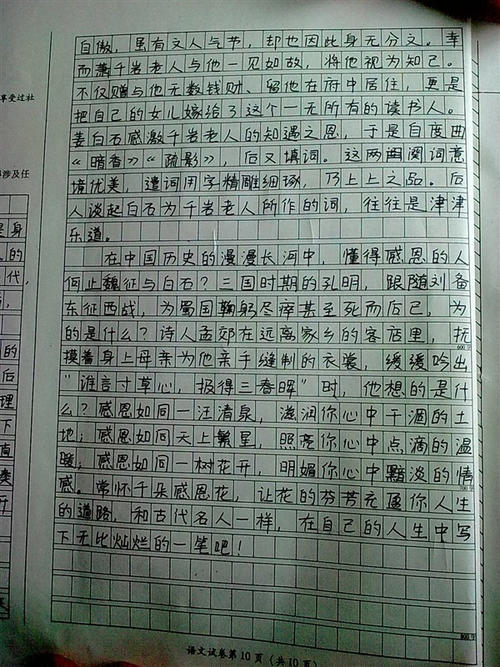 自傲，虽有文人气节，却也因此身无分文。幸
而萧千岩老人与他一见如故，将他视为知己。
不仅赠与他无数钱财、留他在府中居住，更是
把自己的女儿嫁给了这个一无所有的读书人。
姜白石感激千岩老人的知遇之恩，于是自度曲
《暗香》《疏影》，后又填词。这两阕词意
境优美，遣词用字精雕细琢，乃上上之品。后
人谈起白石为千岩老人所作的词，往往是津津
乐道。
在中国历史的漫漫长河中，懂得感恩的人
何止魏征与白石？三国时期的孔明，跟随刘备
东征西战，为蜀国鞠躬尽瘁甚至死而后已，为
的是什么？诗人孟郊在远离家乡的客店里，抚
摸着身上母亲为他亲手缝制的衣裳，缓缓吟出
“谁言寸草心，报得三春晖”时，他想的是什
么？感恩如同一汪清泉，滋润你心中干涸的土
地；感恩如同天上繁星，照亮你心中点滴的温
暖；感恩如同一树花开，明媚你心中黯淡的情
感。常怀千朵感恩花，让花的芬芳充盈你人生
的道路，和古代名人一样，在自己的人生中写
下无比灿烂的一笔吧！
语文试卷第10页（共10页）
享受过社
涉及任
是身
的
代，
的
后
理
下
直
奏
开